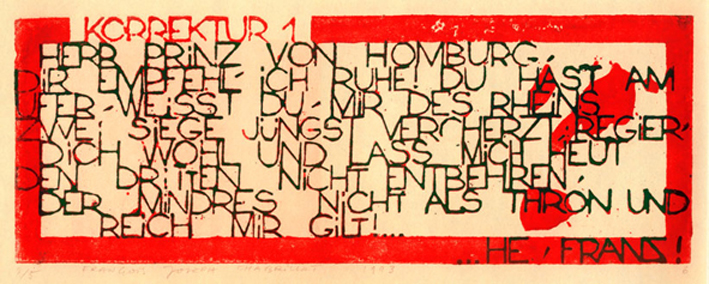 KORREKTUR 1
HERR PRINZ VON HOMBURG,
DIR EMPFEHL' ICH RUHE! DU HAST AM
UFER, WEISST DU, MIR DES RHEINS
ZWEI SIEGE JÜNGST VERCHERZT, REGIER'
DICH WOHL UND LASS MICH HEUT
DEN DRITTEN NICHT ENTBEHREN,
DER MINDRES NICHT ALS THRON UND
REICH MIR GILT!...
...HE, FRANS!
1/5 FRANÇOIS JOSEPH 1983 6